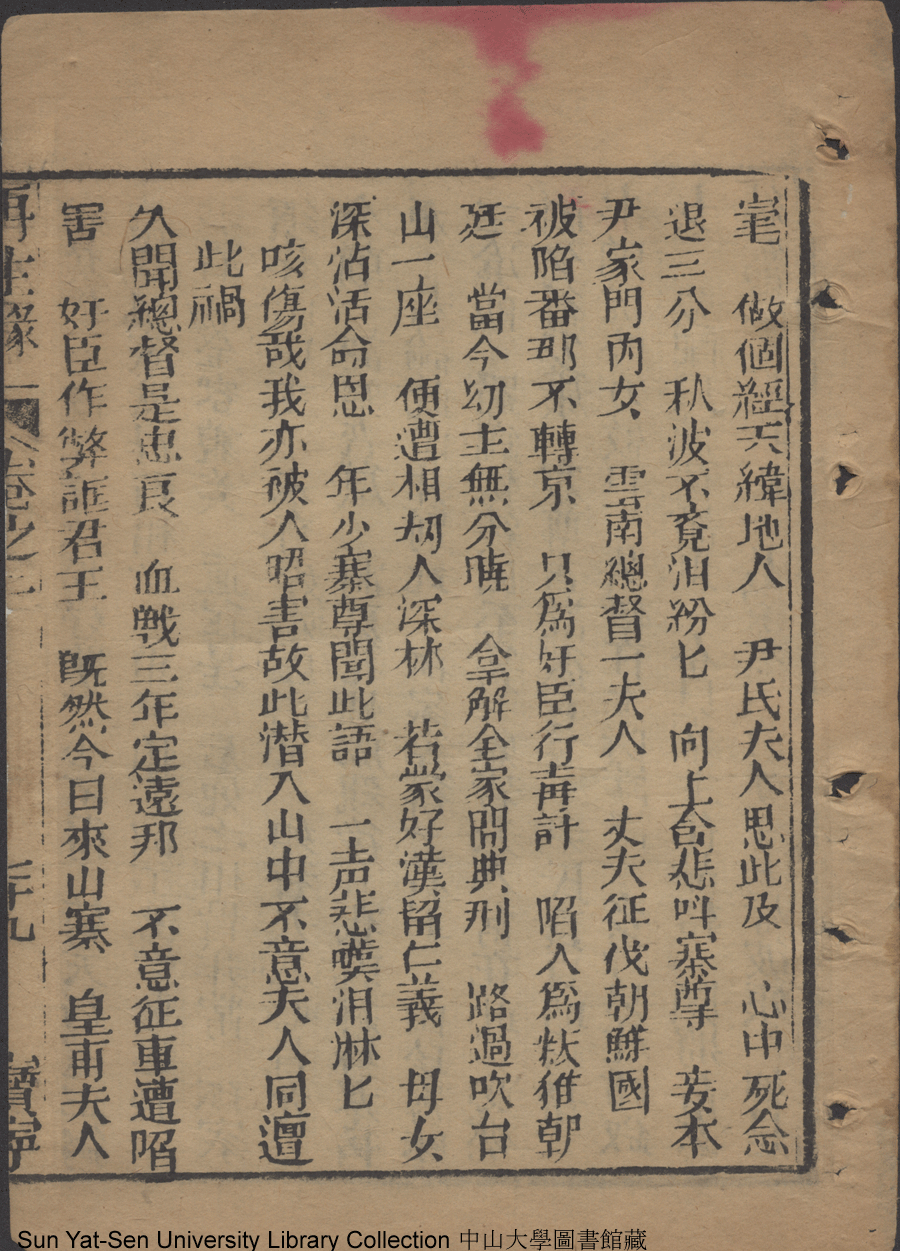 窀 做個經天緯地人 尹氏夫人思此及 心中死念
退三分 秋波不竟泪紛匕 向上含悲呌寨尊 妾本
尹家門內女 雲南總督一夫人 丈夫征伐朝鮮國
被陷番那不轉京 只為奸臣行毒計 陷人為 朝
廷 當今幼主無分曉 拿解全家問典刑 路過吹台
山一座 便遭相刼人深林 若蒙好漢留仁義 母女
深沾活命恩 年少寨尊聞此語 一声悲嘆泪淋匕
咳傷哉我亦被人昭害故此潜入山中不意夫人同遭
此禍
久聞總督是忠良 血戰三年定遠邦 不意征車遭陷
害 奸臣作弊誑君王 既然今日來山寨 皇甫夫人
再生緣 卷之 三十九 寶寧
Sun Yat-Sen University Library Collection 中山大學圖書館藏